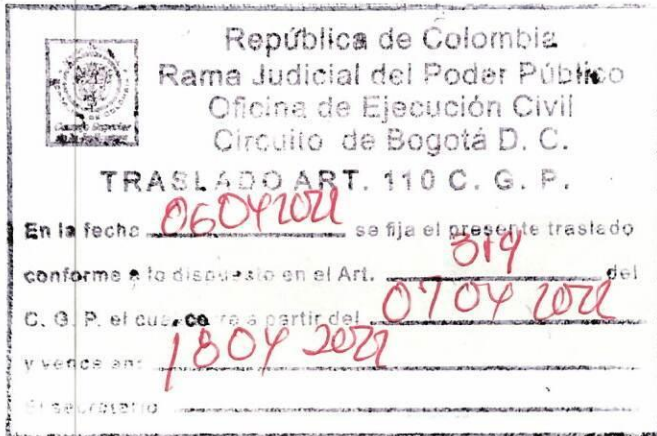 República de Colombia
Rama Judicial del Poder Público
Oficina de Ejecución Civil
Circuito de Bogotá D. C.
TRASLADO ART. 110 C. G. P.
En la fecha 06 04 2022 se fija el presente traslado
conforme a lo dispuesto en el Art. 319 del
C. G. P. el cual corre a partir del 07 04 2022
y vence en: 18 04 2022
El secretario